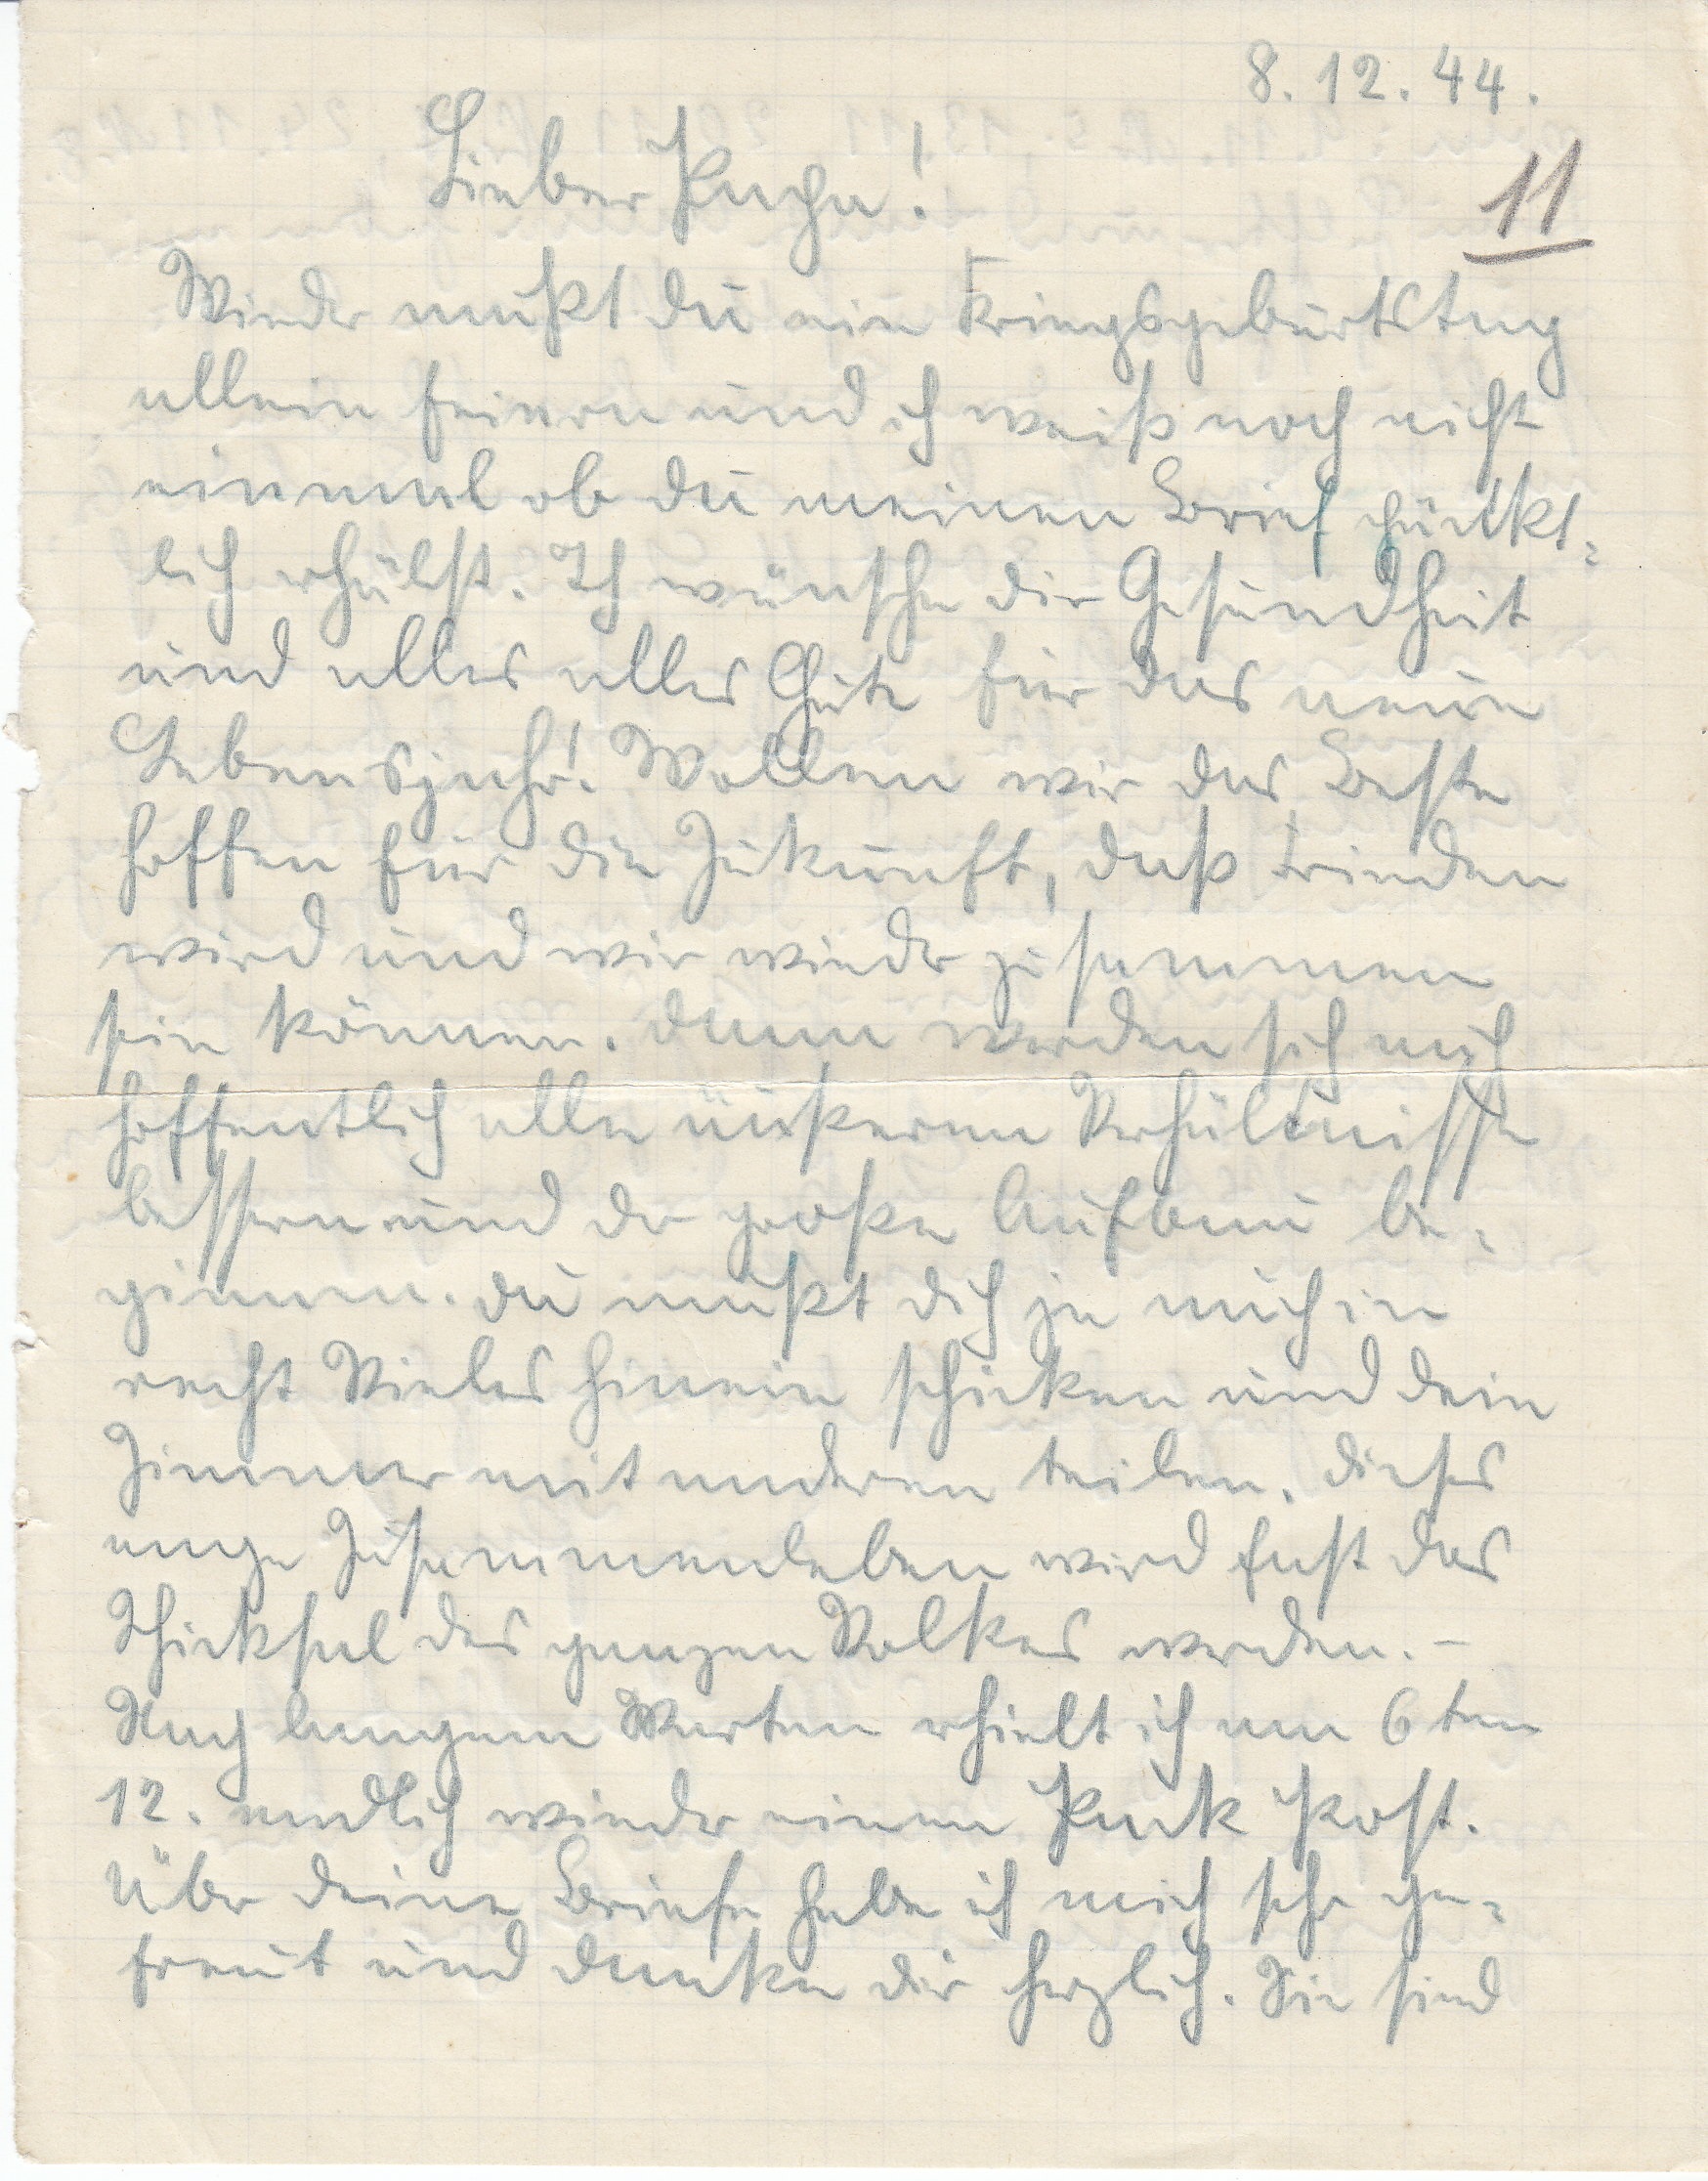 8.12.44.
Lieber Papa!
11
Wieder mußt du ein Kriegsgeburtstag
allein feiern und ich weiß noch nicht
einmal ob du meinen Brief pünkt-
lich erhälst. Ich wünsche dir Gesundheit
und alles alles Gute für das neue
Lebensjahr! Wollen wir das Beste
hoffen für die Zukunft, daß Frieden
wird und wir wieder zusammen
sein können. Dann werden sich auch
hoffentlich alle äußeren Verhältnisse
bessern und der große Aufbau be-
ginnen. Du mußt dich ja auch in
recht Vieles hinein schicken und dein
Zimmer mit anderen teilen. Dieses
enge Zusammenleben wird fast das
Schicksal des ganzen Volkes werden. –
Nach langem Warten erhielt ich am 6ten
12. endlich wieder einen Pack Post.
Über deine Briefe habe ich mich sehr ge-
freut und danke dir herzlich. Sie sind